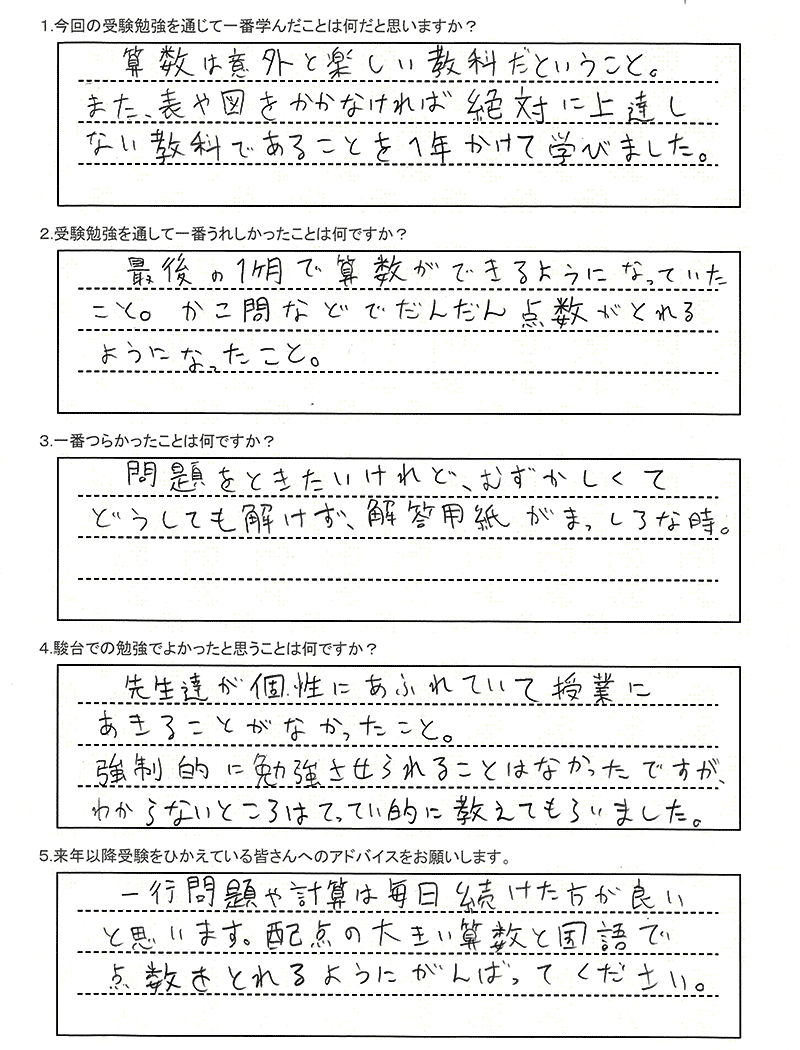 1.今回の受験勉強を通じて一番学んだことは何だと思いますか？
算数は意外と楽しい教科だということ。
また、表や図をかかなければ絶対に上達し
ない教科であることを1年かけて学びました。
2.受験勉強を通して一番うれしかったことは何ですか？
最後の1ケ月で算数ができるようになっていた
こと。かこ問などでだんだん点数がとれる
ようになったこと。
3.一番つらかったことは何ですか？
問題をときたいけれど、むずかしくて
どうしても解けず、解答用紙がまっしろな時。
4.駿台での勉強でよかったと思うことは何ですか？
先生達が個性にあふれていて授業に
あきることがなかったこと。
強制的に勉強させられることはなかったですが、
わからないところはてってい的に教えてもらいました。
5.来年以降受験をひかえている皆さんへのアドバイスをお願いします。
一行問題や計算は毎日続けた方が良い
と思います。配点の大きい算数と国語で
点数をとれるようにがんばってください。